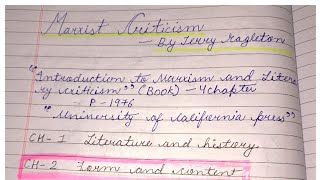 Marxist Criticism
- By Terry Eagleton
"Introduction to Marxism and Litera
ry criticism" (Book) - 4chapter
P - 1976
"University of California press"
CH- 1 Literature and history
CH- 2 Form and content